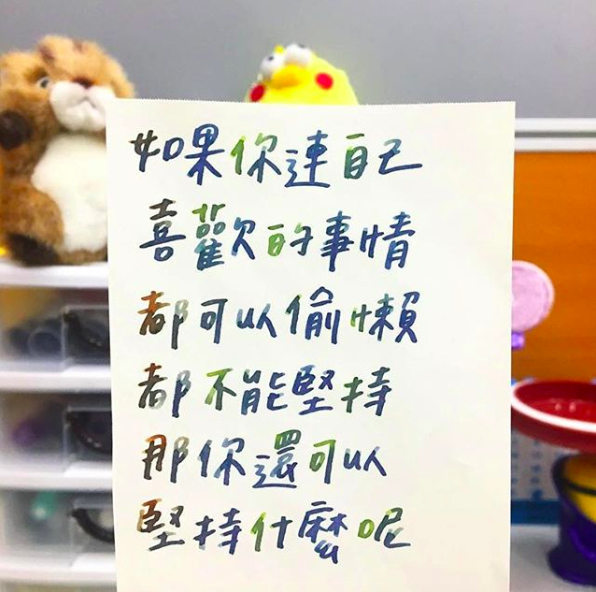 如果你連自己
喜歡的事情
都可以偷懶
都不能堅持
那你還可以
堅持什麼呢